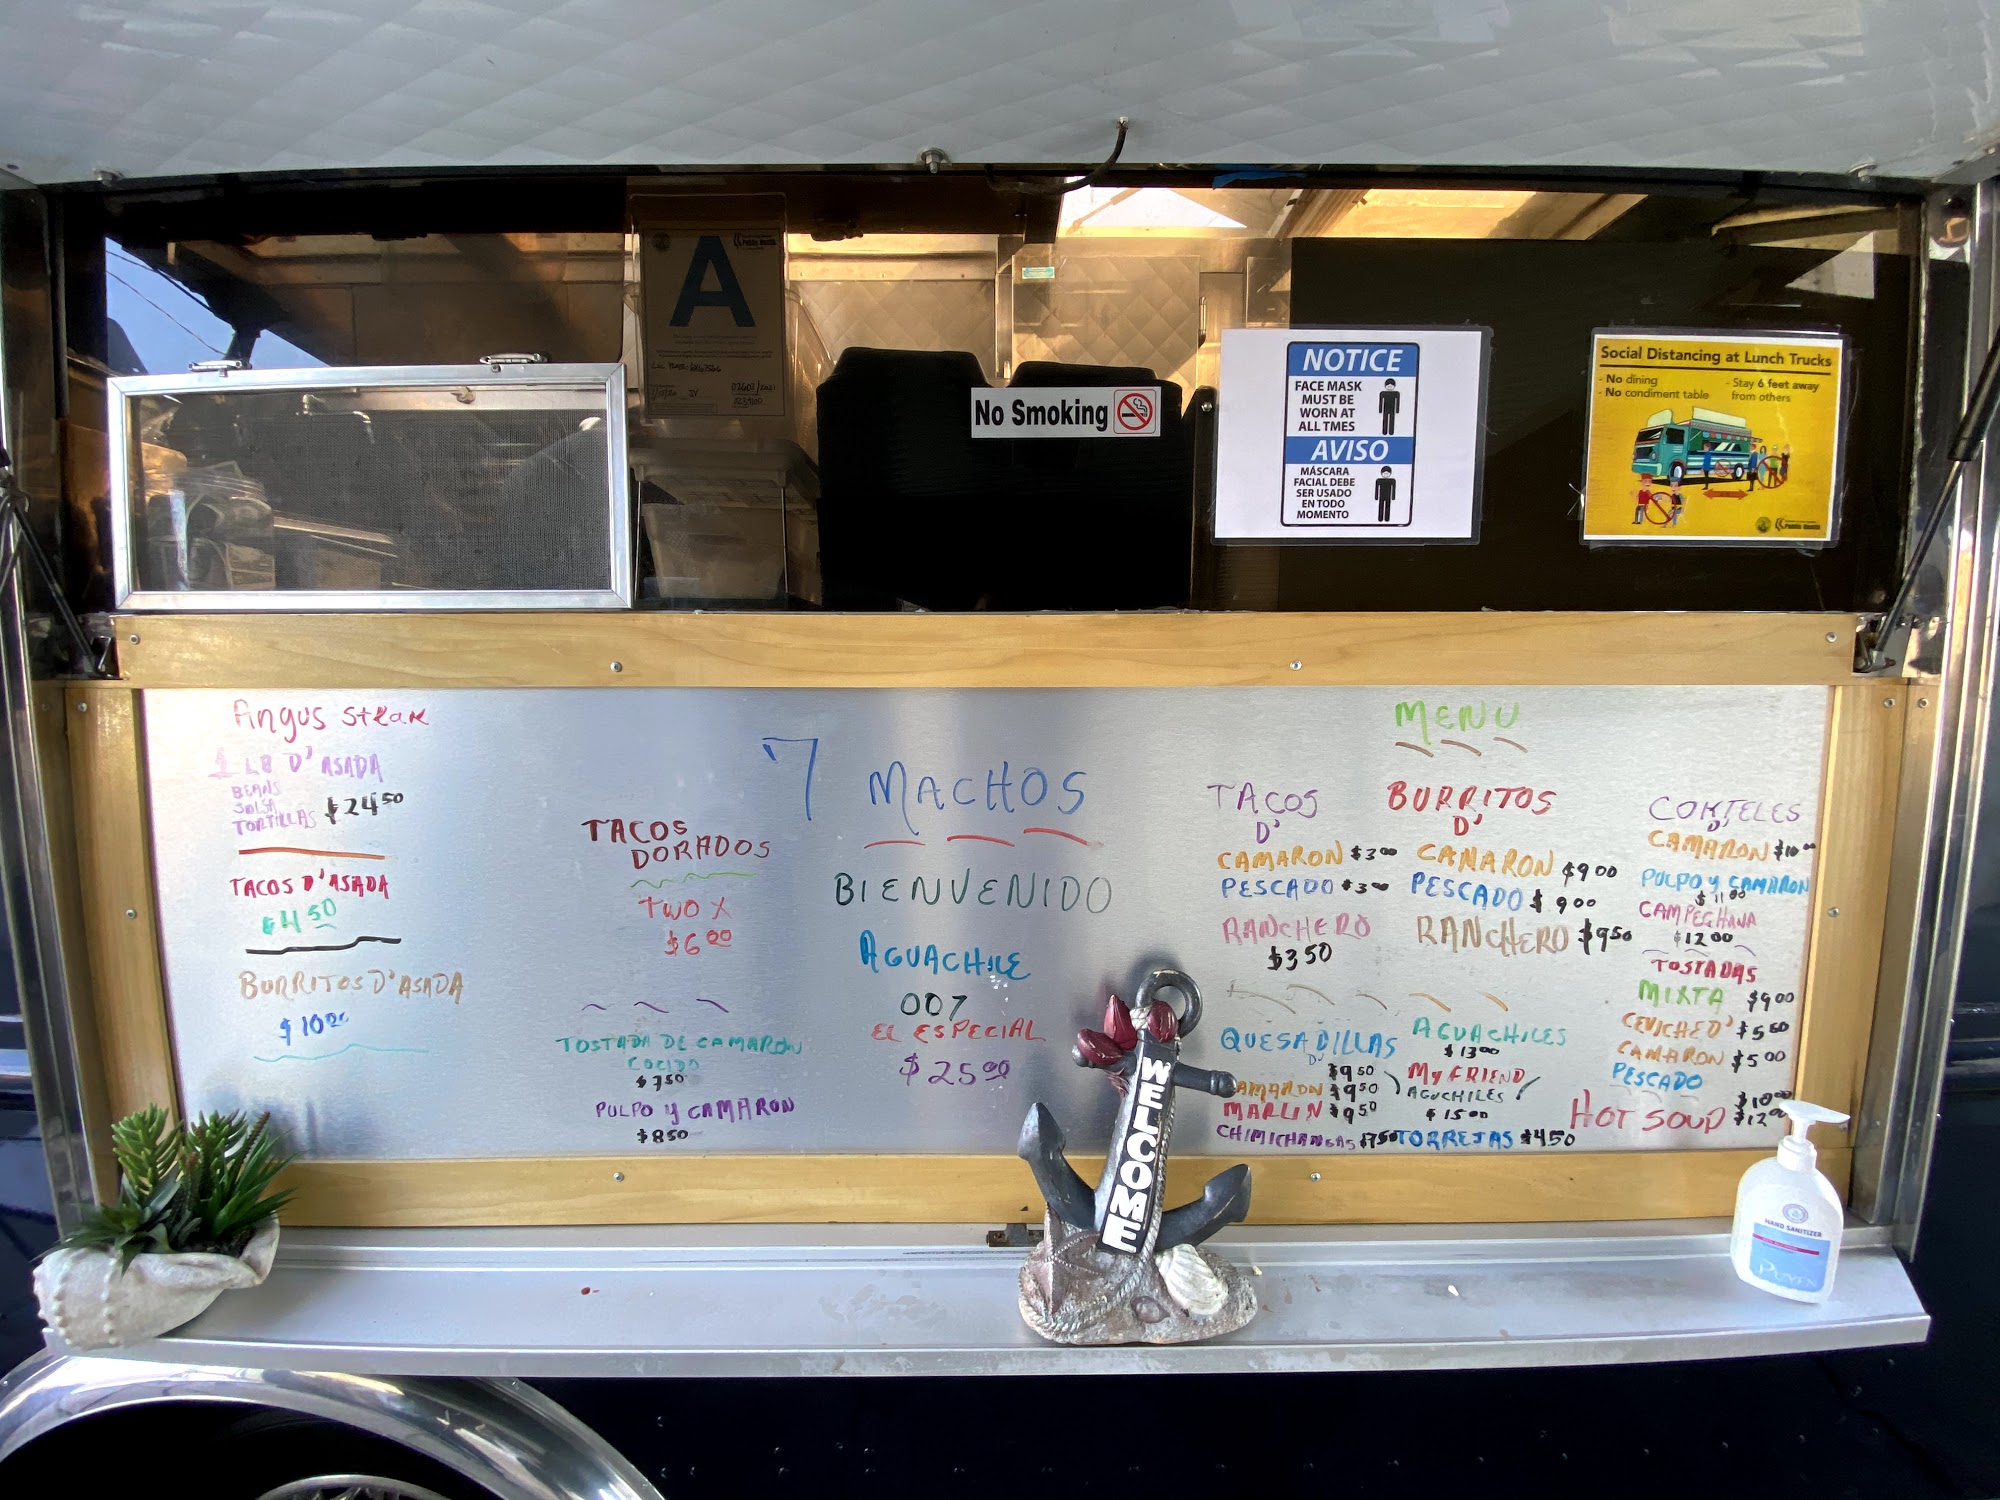 Public Health
A
No Smoking
NOTICE
FACE MASK
MUST BE
WORN AT
ALL TMES
AVISO
MÁSCARA
FACIAL DEBE
SER USADO
EN TODO
MOMENTO
Social Distancing at Lunch Trucks
- No dining
- No condiment table
- Stay 6 feet away
from others
Public Health
Angus Steak
1 LB D'ASADA
BEANS
SOLSA
TORTILLAS $24 50
TACOS D'ASADA
$4 50
BURRITOS D'ASADA
$10 00
TACOS
DORADOS
TWO X
$6 00
TOSTADA DE CAMARON
COCIDO
$7 50
PULPO Y CAMARON
$8 50
7 MACHOS
BIENVENIDO
AGUACHILE
007
EL ESPECIAL
$25 00
MENU
TACOS
D'
CAMARON $3 00
PESCADO $3 00
RANCHERO
$3 50
BURRITOS
D'
CAMARON $9 00
PESCADO $9 00
RANCHERO $9 50
COKTELES
D'
CAMARON $10 00
PULPO Y CAMARON
$11 00
CAMPECHANA
$12 00
TOSTADAS
MIXTA $9 00
CEVICHE D' $5 50
CAMARON $5 00
PESCADO
HOT SOUP $10 00
$12 00
QUESADILLAS
D' $9 50
CAMARON $9 50
MARLIN $9 50
CHIMICHANGAS $7 50
AGUACHILES
$13 00
MY FRIEND
AGUCHILES
$15 00
TORREJAS $4 50
WELCOME
HAND SANITIZER